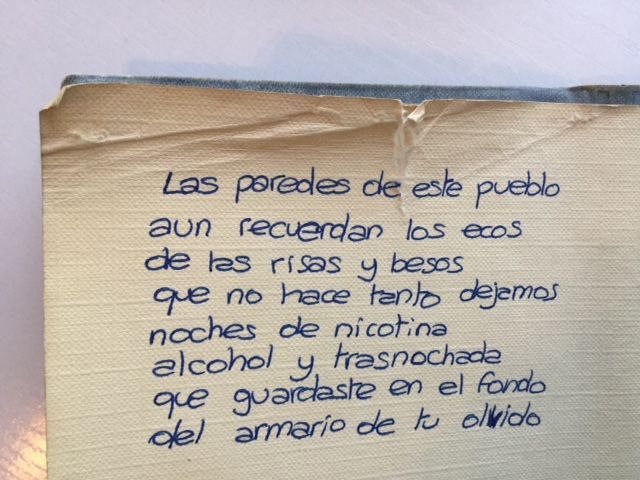 Las paredes de este pueblo
aun recuerdan los ecos
de las risas y besos
que no hace tanto dejamos
noches de nicotina
alcohol y trasnochada
que guardaste en el fondo
del armario de tu olvido